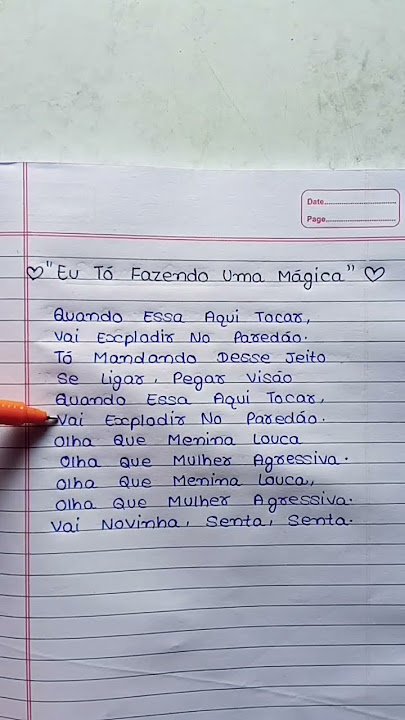 Date
Page
"Eu Tô Fazendo Uma Mágica"
Quando Essa Aqui Tocar,
Vai Explodir No Paredão.
Tô Mandando Desse Jeito
Se Ligar, Pegar Visão
Quando Essa Aqui Tocar,
Vai Explodir No Paredão.
Olha Que Menina Louca
Olha Que Mulher Agressiva.
Olha Que Menina Louca,
Olha Que Mulher Agressiva.
Vai Novinha, Senta, Senta.